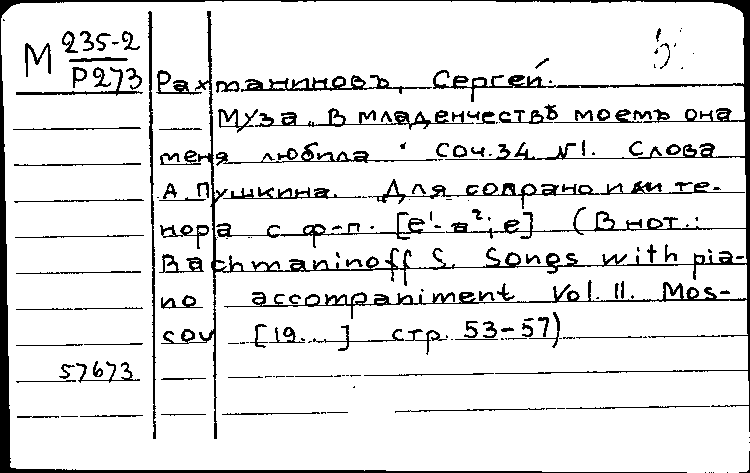 М 235-2
Р273
Рахманиновъ, Сергей.
Муза „В младенчествѣ моемъ она
меня любила“ Соч.34 №1. Слова
А. Пушкина. Для сопрано или те-
нора с ф-п. [e¹-a²; e] (В нот.:
Rachmaninoff S. Songs with pia-
no accompaniment Vol. II. Mos-
cou [19...] стр. 53-57)
57673